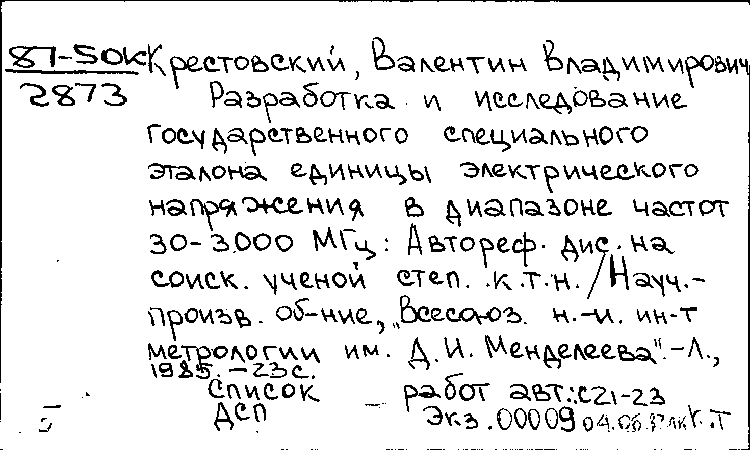 87-50К Крестовский, Валентин Владимирович
2873 Разработка и исследование
государственного специального
эталона единицы электрического
напряжения в диапазоне частот
30-3000 МГц: Автореф. дис. на
соиск. ученой степ. к.т.н./Науч.-
произв. об-ние, „Всесоюз. н.-и. ин-т
метрологии им. Д.И. Менделеева".-Л.,
1985.-23с.
Список работ авт.:с21-23
ДСП - Экз.00009 04.06. К.Т